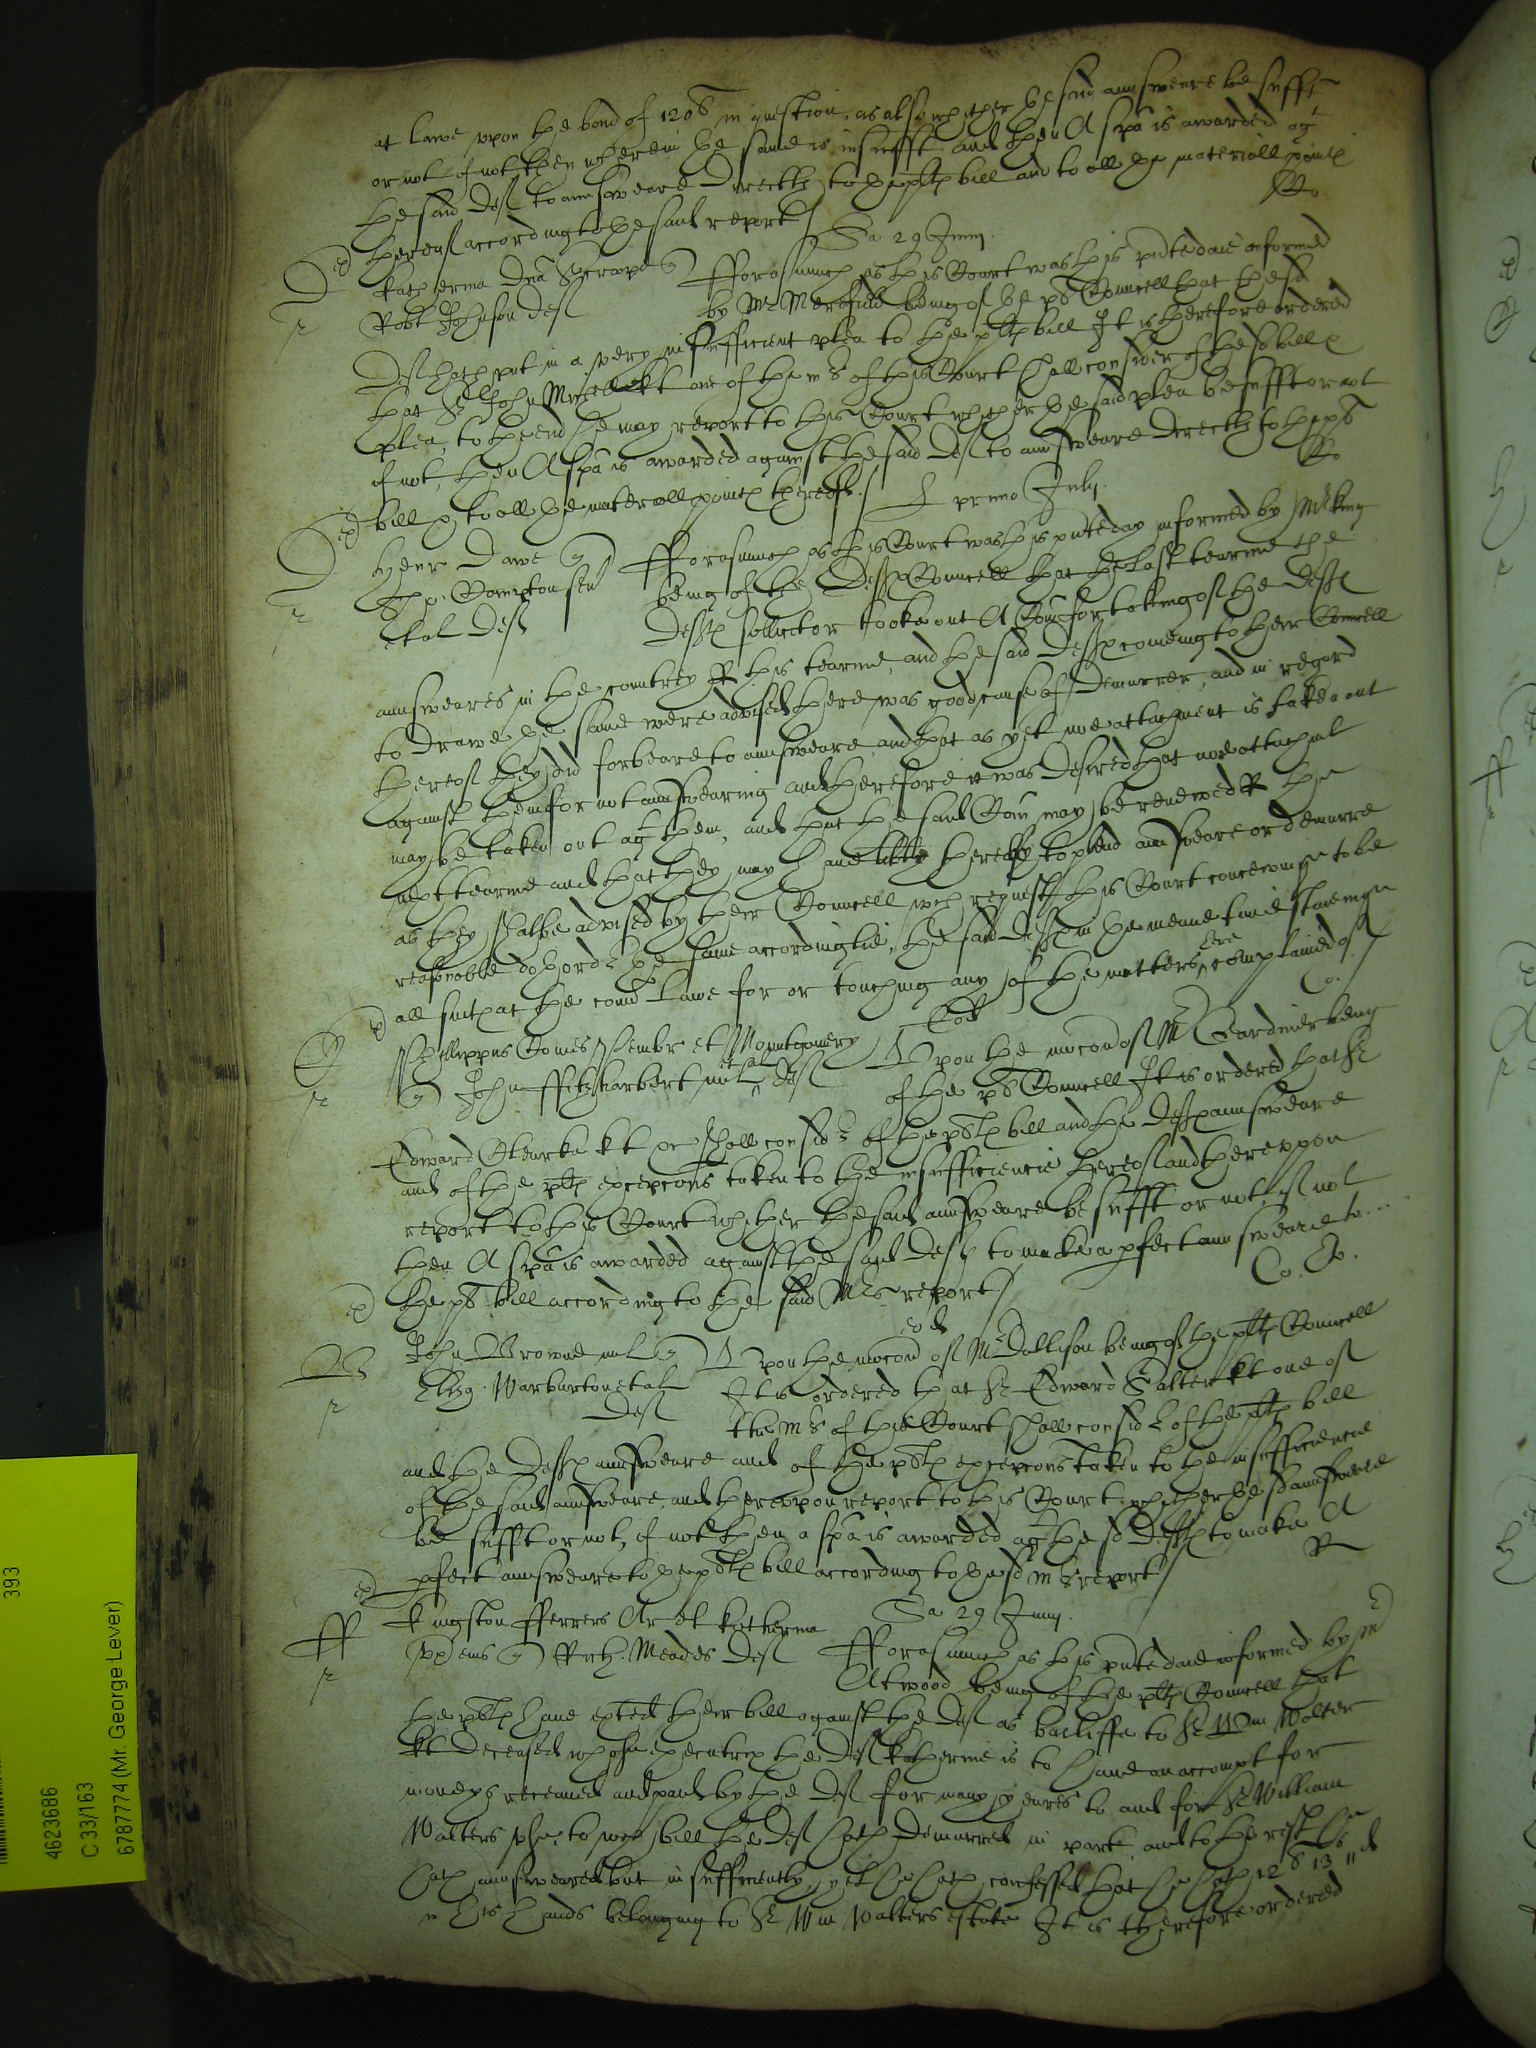 at lawe upon the bond of 120li in question, as also whether the said answeare be sufft
or not if not then wherein the same is insufft and then A spa is awarded agt
the said deft to answeare directly to the pltes bill and to all the materiall pointes
thereof according to the said report
Sa 29 Junij
Katherina Dna Scroope
Robt Johnson deft
Forasmuch as this Court was this pnte daie informed
by Mr Merefield being of the pls Councell that the sd
Deft hath put in a very insufficient plea to the pltes bill It is therefore ordered
that Sr John Michell kt one of the mrs of this Court shall consider of the sd bill &
plea, to the end he may report to this Court whether the said plea be sufft or not
if not, then A spa is awarded against the said deft to answeare directly to the pls
bill & to all the materiall pointes thereof
primo July
Dawe
Compton sen
et al Deft
Forasmuch as this Court was this pnte day informed by Mr King
being of the Deftes Councell that the last tearme the
Deftes sollicitor tooke out A Com for taking of the Deftes
answeares in the countrey this tearme, and the said Deftes comeing to their Councell
to drawe the same were advised there was good cause of Demurrer, and in regard
thereof they did forbeare to answeare, and that as yet noe attachment is taken out
against them for not answearing and therefore it was desired that noe attachmt
may be taken out agt them, and that the said Com may be renewed the
next tearme and that they may have libty thereby to plead answeare or demurre
as they shalbe advised by their Councell wch request this Court conceiving to be
reasonable doth ordr the same accordinglie, the said Deftes in the meane time staieing
all suites at the comon lawe for or touching any of the matters here complained of
Eod
Phillippus Comes Pembr et Mountgomery
John Fitzharbert mil et al deft
Upon the mocon of Mr Gardiner being
of the pls Councell It is ordered that Sr
Edward Clearke kt &c shall consider of the pltes bill and the Deftes answeare
and of the pltes excepcons taken to the insufficiencie thereof and thereuppon
report to this Court whether the said answeare be sufft or not, if not
then A spa is awarded against the said deft to make a pfect answeare to
the pls bill according to the said Mrs report
eod
John Browne mil
Eliz. Warburton et al
Deft
Upon the mocon of Mr Dallison being of the pltes Councell
It is ordered that Sr Edward Salter kt one of
the mrs of this Court shall considr of the pltes bill
and the Deftes answeare and of the pltes excepcons taken to the insufficiencie
of the said answeare, and thereuppon report to this Court whether the sd answeare
be sufft or not, if not then a spa is awarded agt the sd Deftes to make A
pfect answeare to the pltes bill according to the sd mrs report
Sa 29 Junij
Kingston Fferrers Ar et Katherina
Meades Deft
Forasmuch as this pnte daie informed by Mr
Atwood being of the pltes Councell that
the pltes have exhted their bill against the Deft as bailiffe to Sr Wm Walter
kt deceased whose executrix the Katherine is to have an accompt for
moneys received and paid by the Deft for many yeares to and for Sr William
Walters use, to wch bill the Deft hath Demurred in parte and to the rest
hath answeared but insufficiently, yet he hath confessed that he hath 12li 13s
in his hands belonging to Sr Wm Walters estate It is therefore ordered
393
4623686
C 33/163
6787774 (Mr. George Lever)